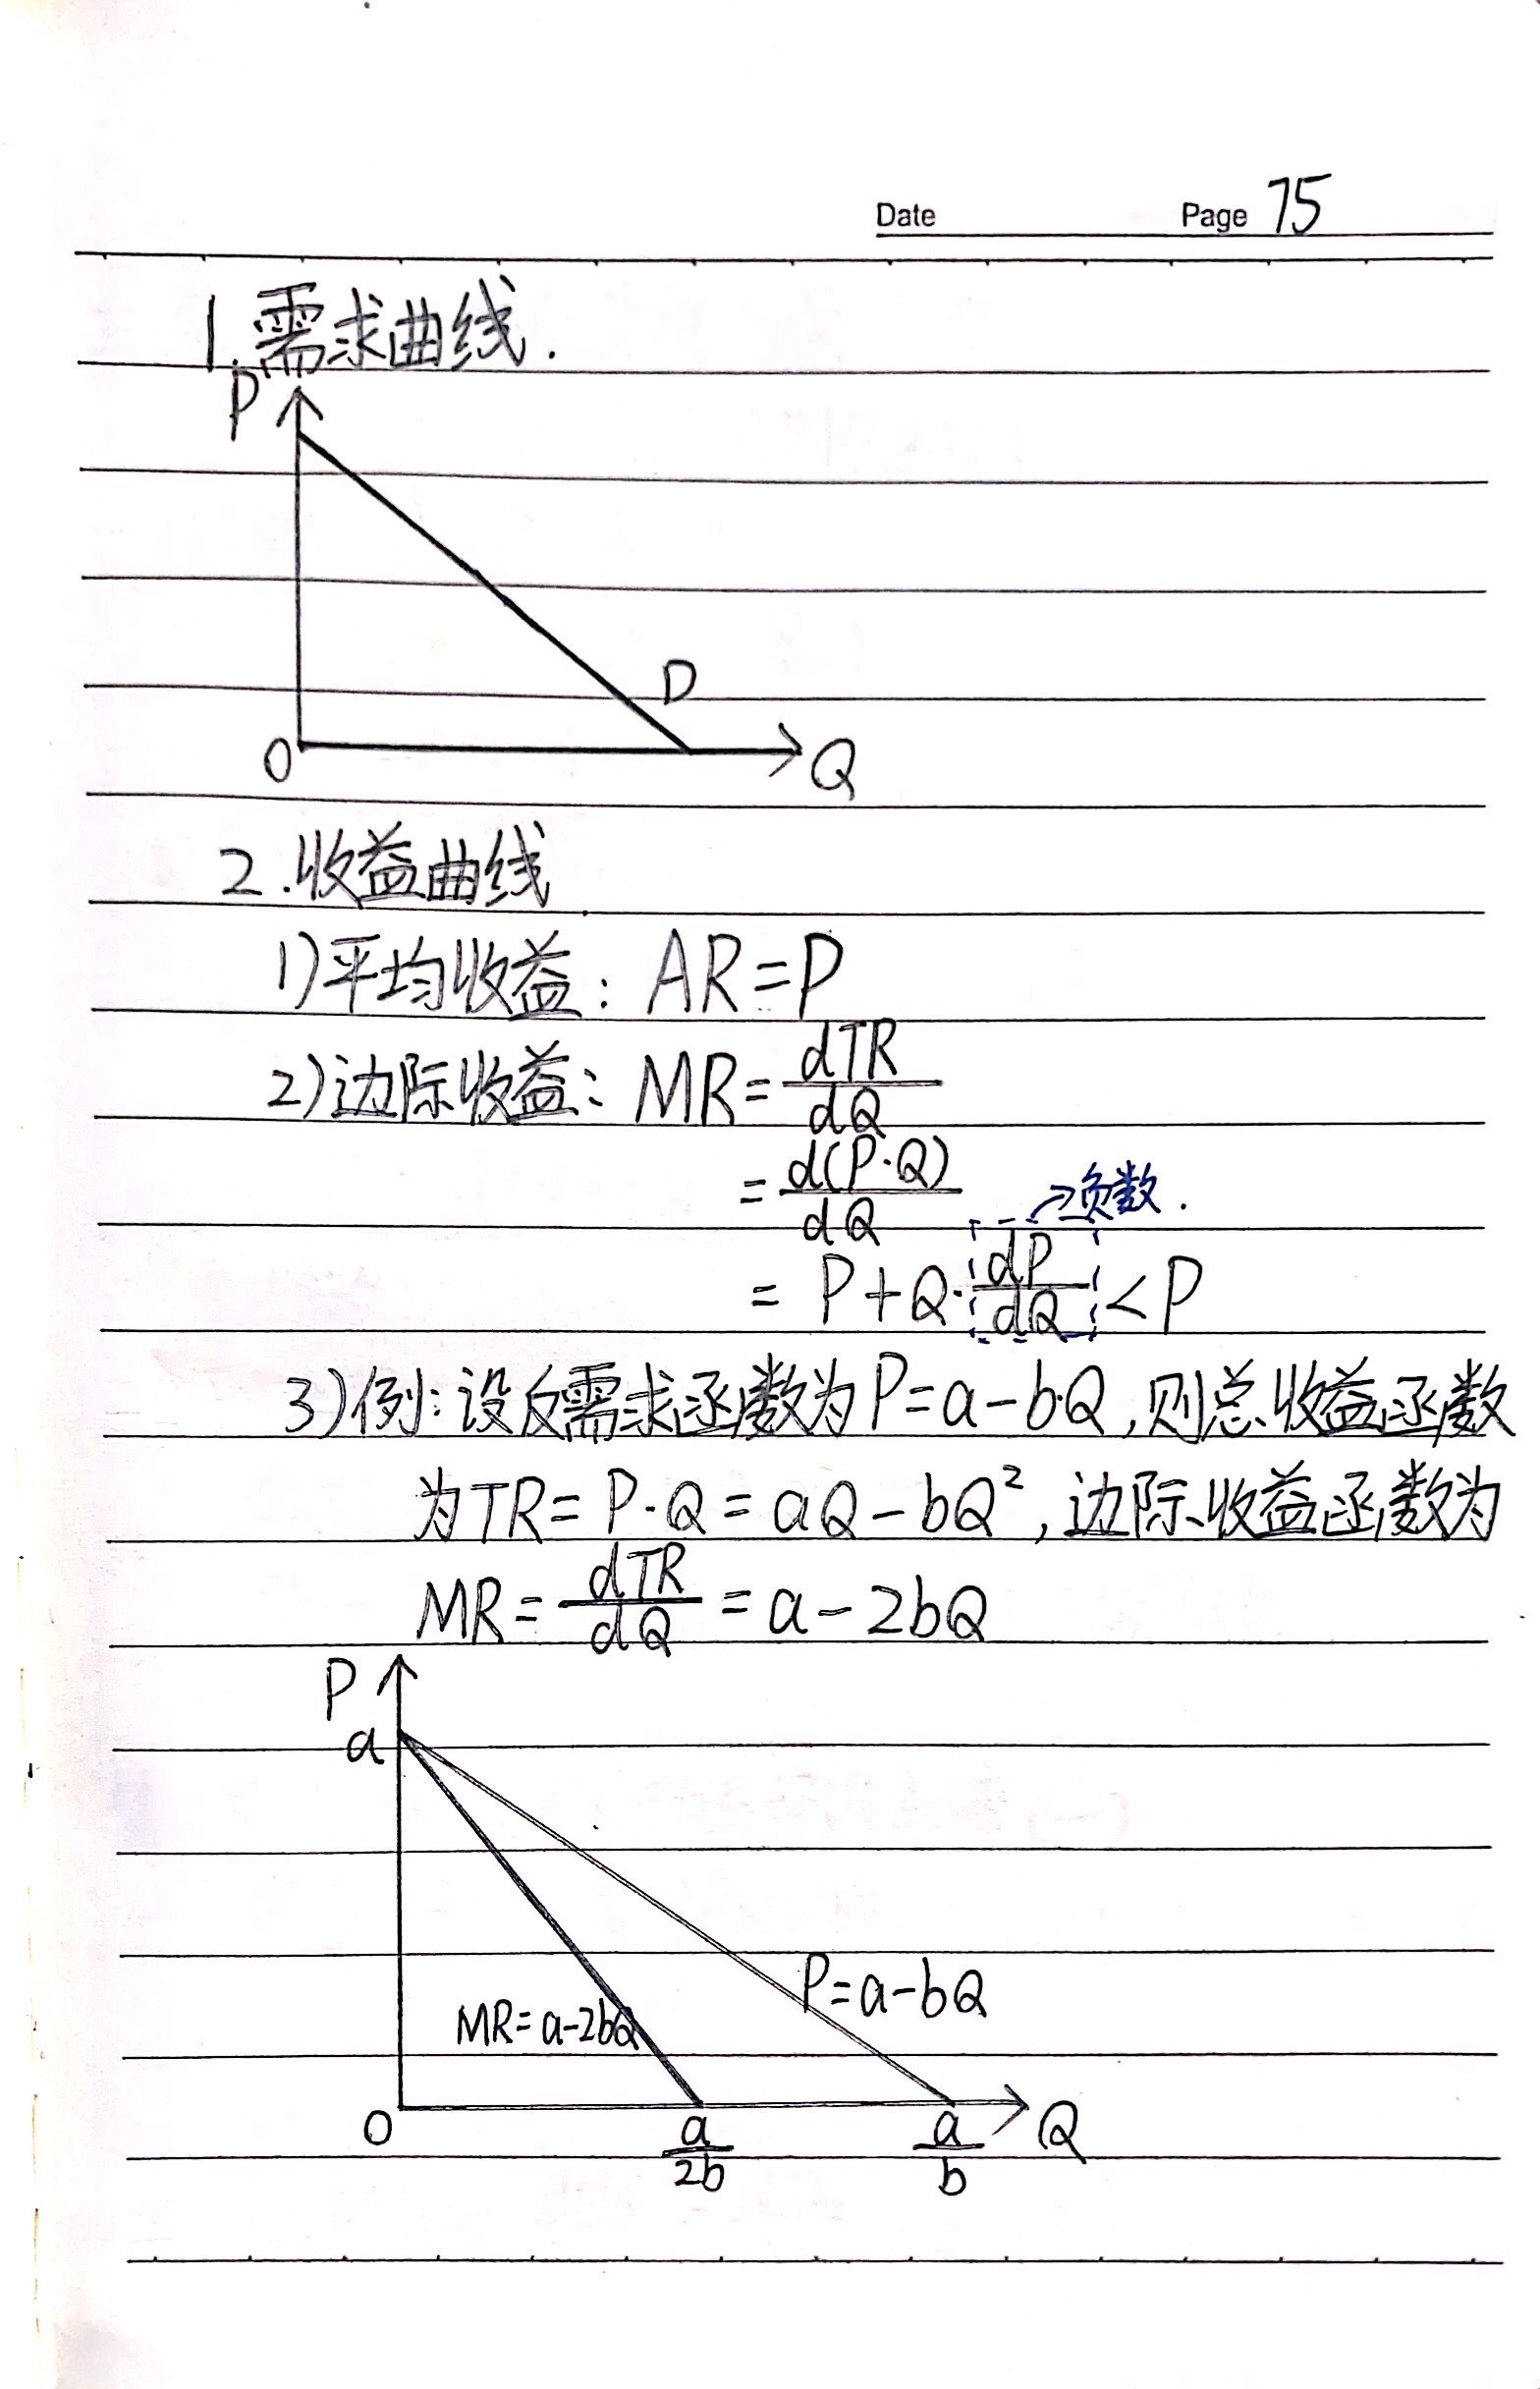 Date Page 75
1.需求曲线.
P
D
O Q
2.收益曲线
1)平均收益: AR=P
2)边际收益: MR=dTR/dQ
=d(P·Q)/dQ
→负数.
=P+Q·dP/dQ<P
3)例:设反需求函数为P=a-b·Q,则总收益函数
为TR=P·Q=aQ-bQ²,边际收益函数为
MR=dTR/dQ=a-2bQ
P
a
P=a-bQ
MR=a-2bQ
O a/2b a/b Q